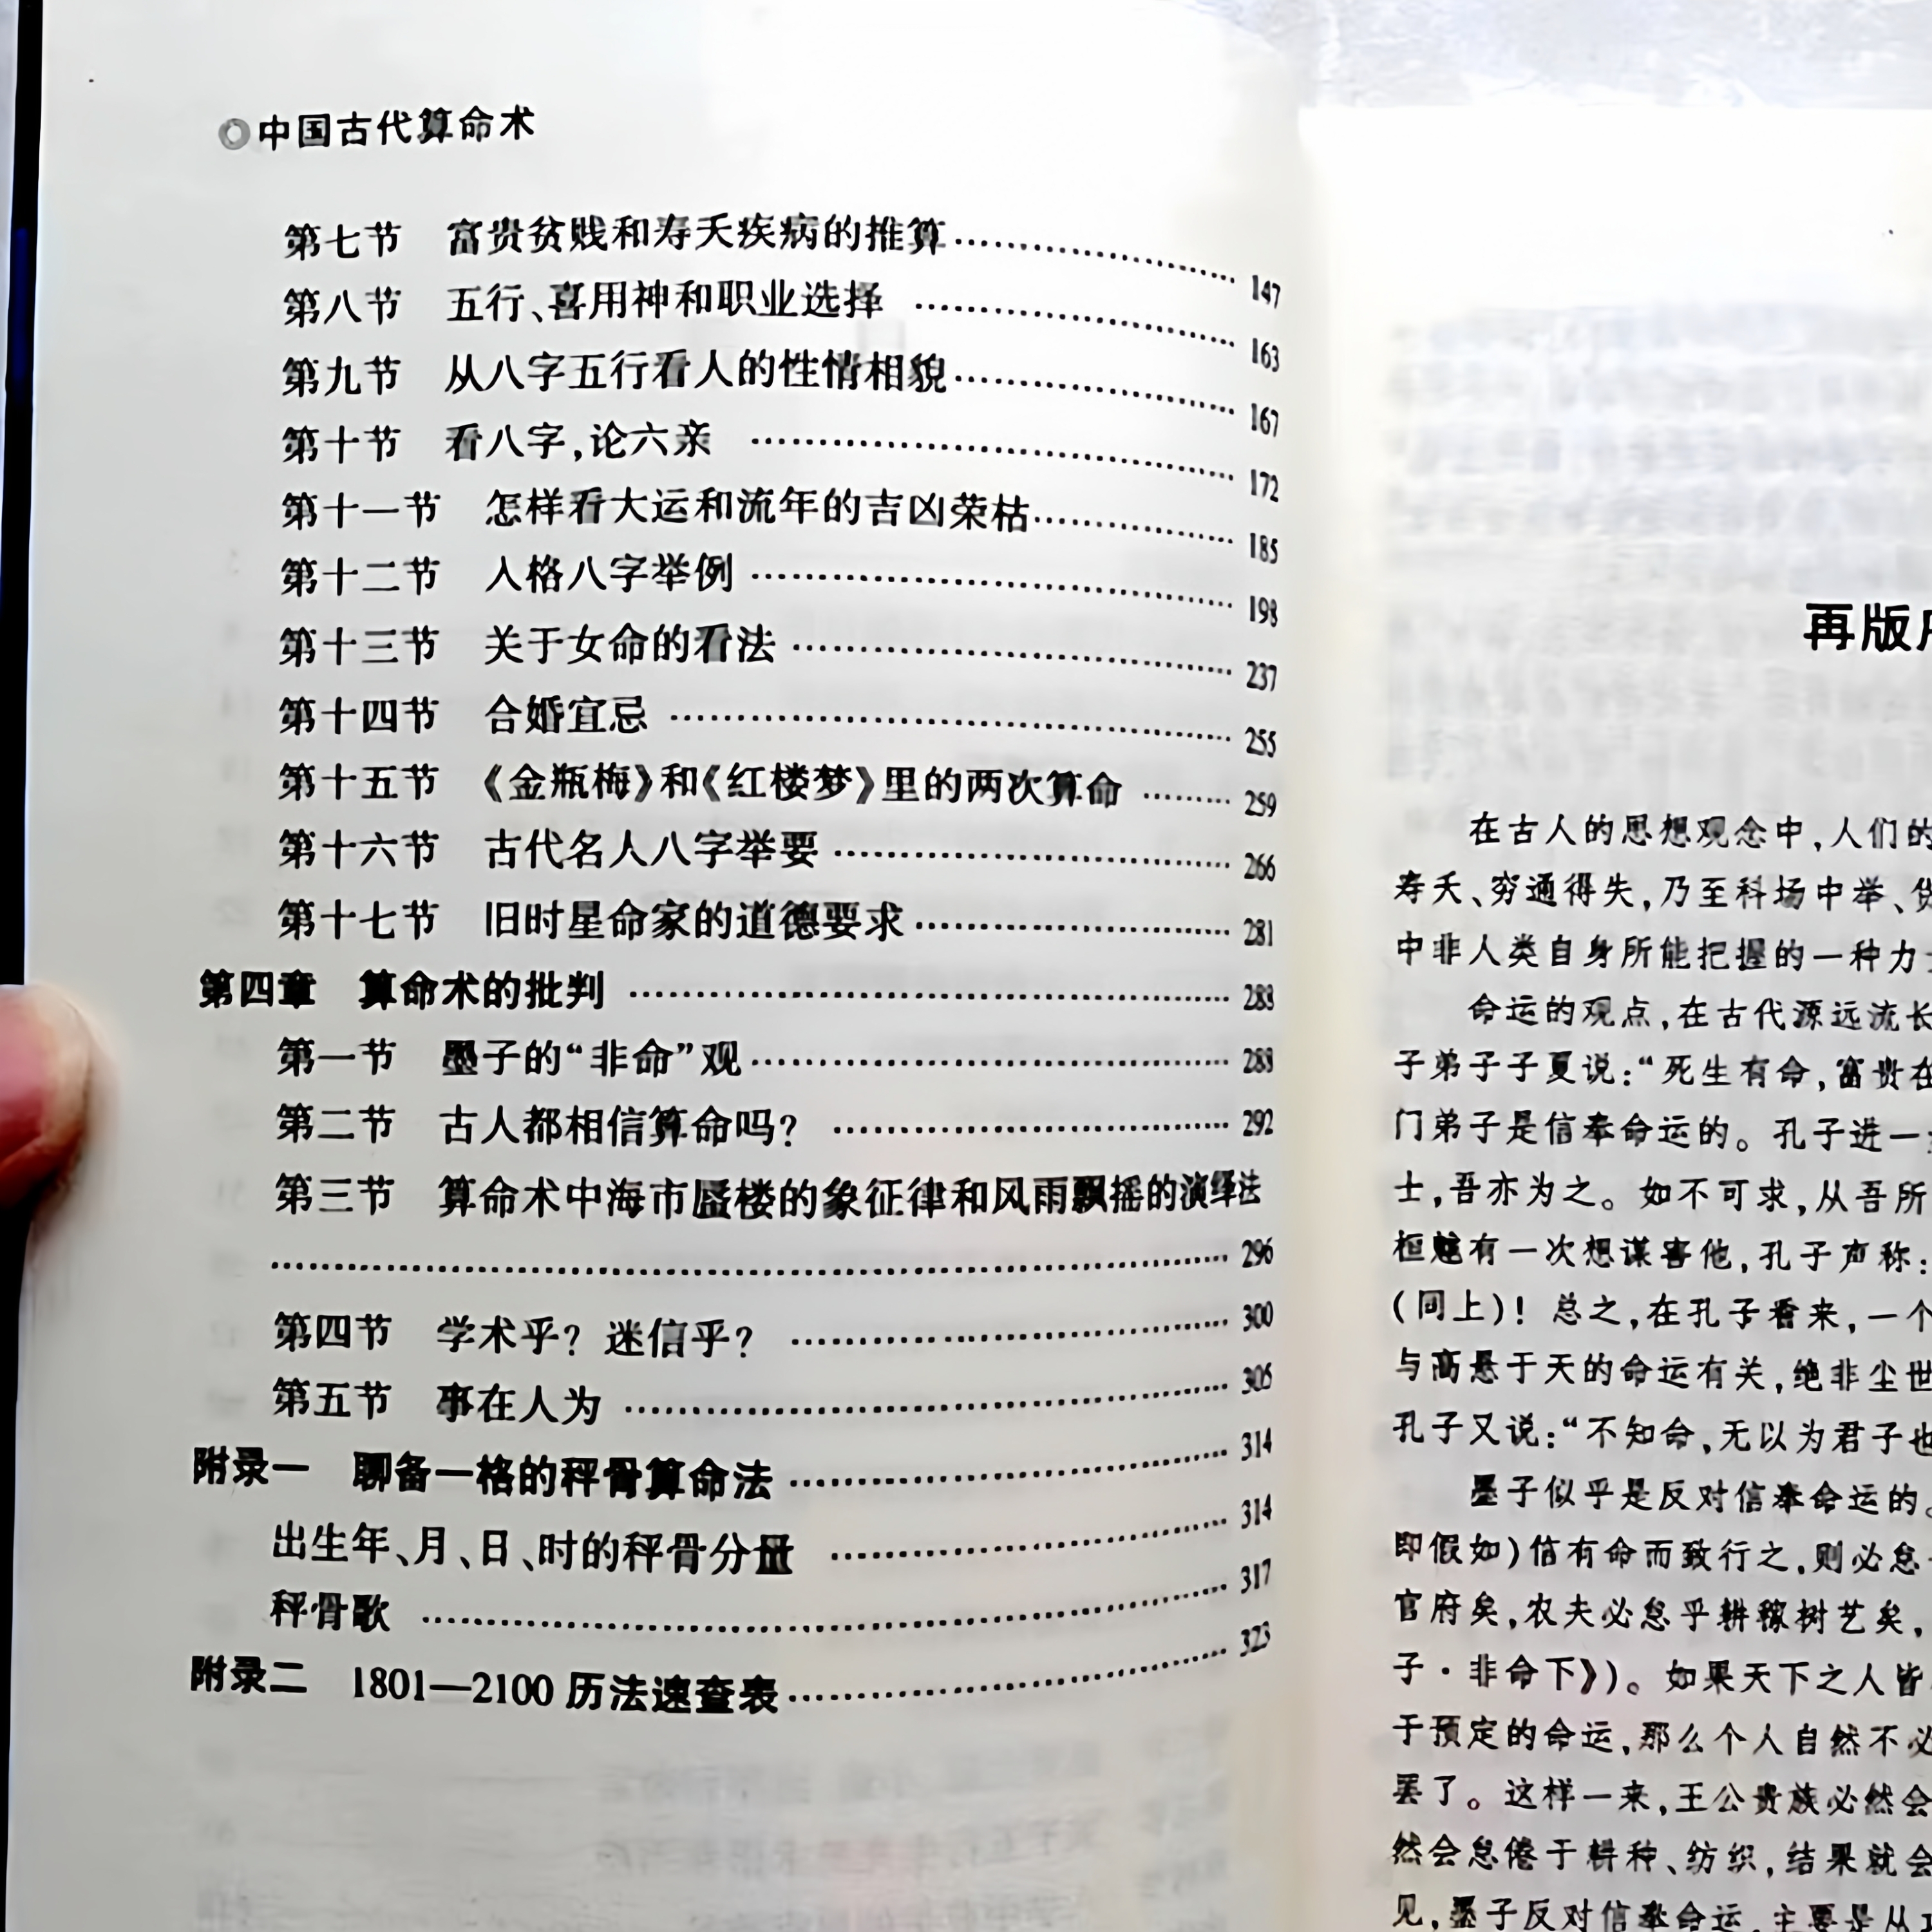 中国古代算命术
第七节 富贵贫贱和寿夭疾病的推算 147
第八节 五行、喜用神和职业选择 163
第九节 从八字五行看人的性情相貌 167
第十节 看八字,论六亲 172
第十一节 怎样看大运和流年的吉凶荣枯 185
第十二节 人格八字举例 198
第十三节 关于女命的看法 237
第十四节 合婚宜忌 255
第十五节 《金瓶梅》和《红楼梦》里的两次算命 259
第十六节 古代名人八字举要 266
第十七节 旧时星命家的道德要求 281
第四章 算命术的批判 288
第一节 墨子的“非命”观 288
第二节 古人都相信算命吗? 292
第三节 算命术中海市蜃楼的象征律和风雨飘摇的演绎法
296
第四节 学术乎?迷信乎? 300
第五节 事在人为 305
附录一 聊备一格的秤骨算命法 314
出生年、月、日、时的秤骨分量 314
秤骨歌 317
附录二 1801—2100历法速查表 323
再版
在古人的思想观念中,人们的
寿夭、穷通得失,乃至科场中举、
中非人类自身所能把握的一种力
命运的观点,在古代源远流长
子弟子子夏说:“死生有命,富贵在
门弟子是信奉命运的。孔子进一
士,吾亦为之。如不可求,从吾所
桓魋有一次想谋害他,孔子声称:
(同上)!总之,在孔子看来,一个
与高悬于天的命运有关,绝非尘世
孔子又说:“不知命,无以为君子也
墨子似乎是反对信奉命运的。
即假如)信有命而致行之,则必怠
官府矣,农夫必怠乎耕稼树艺矣,
子·非命下》)。如果天下之人皆
于预定的命运,那么个人自然不必
罢了。这样一来,王公贵族必然会
然会怠倦于耕种、纺织,结果就会
见,墨子反对信奉命运,主要是从